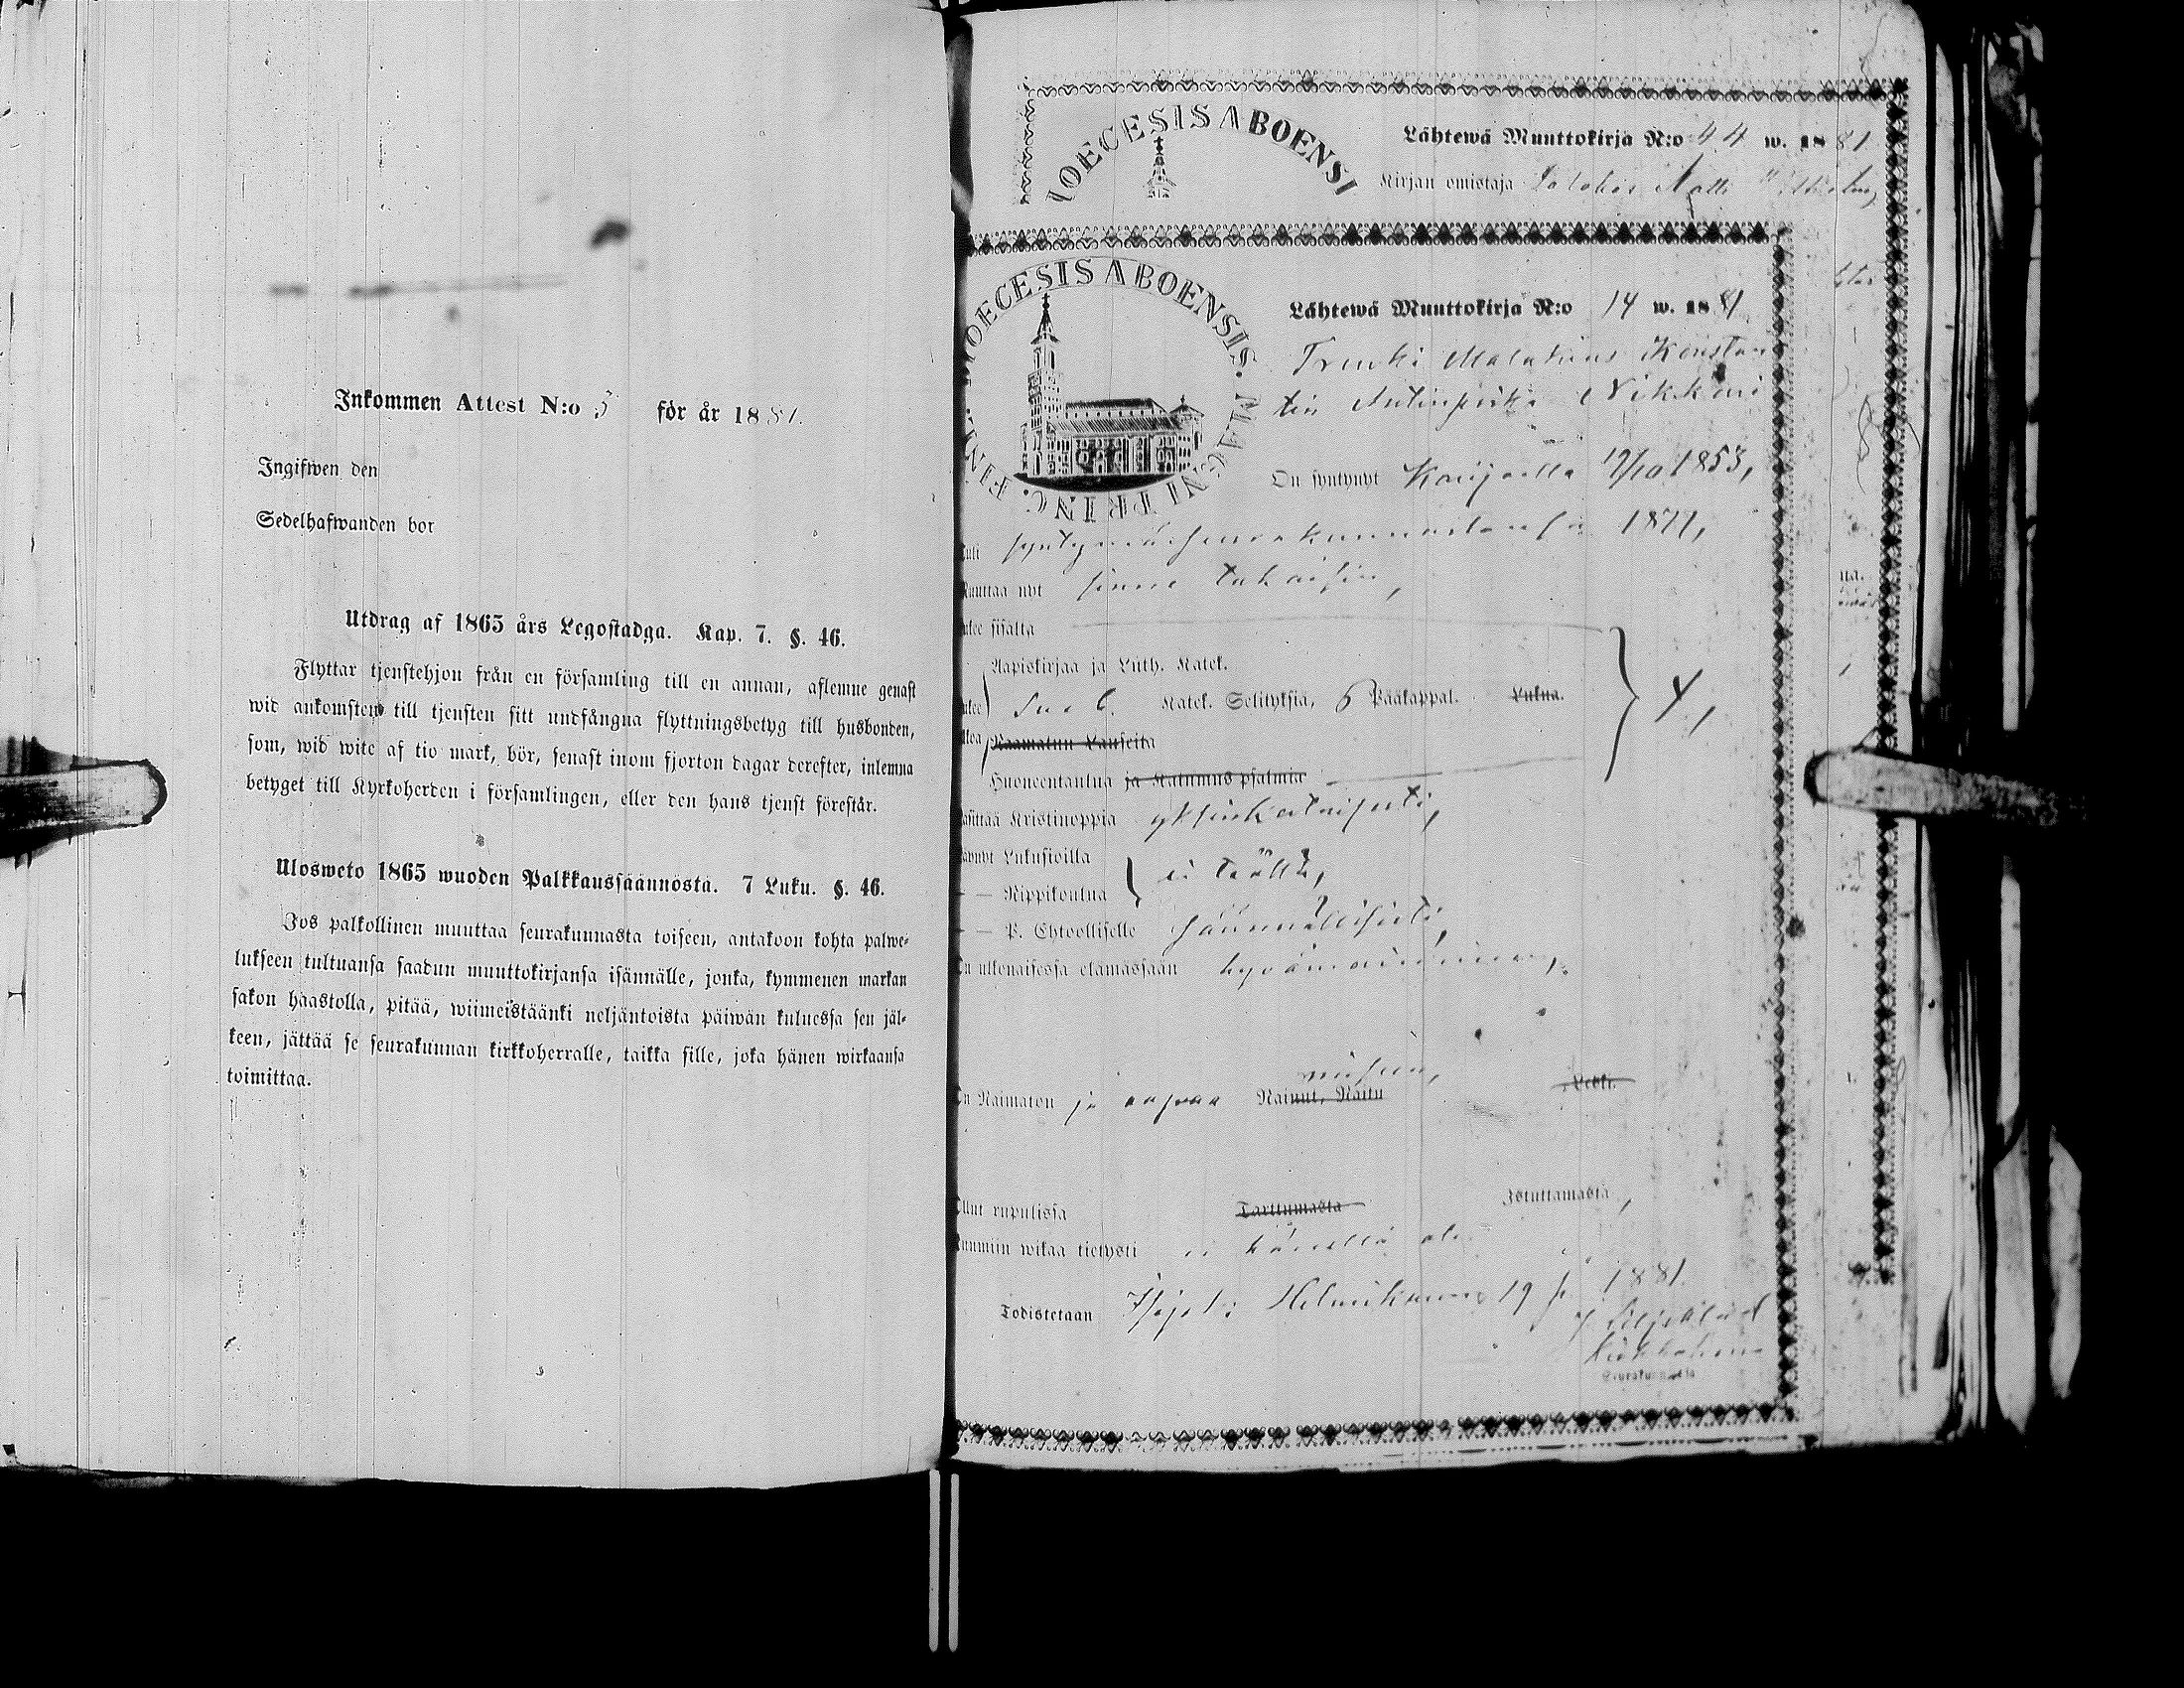 Inkommen Attest N:o 5 för år 1881.
Ingifwen den
Sedelhafwanden bor
Utdrag af 1865 års Legostadga. Kap. 7. §. 46.
Flyttar tjenstehjon från en församling till en annan, aflemne genast
wid ankomsten till tjensten sitt undfångna flyttningsbetyg till husbonden,
som, wid wite af tio mark, bör, senast inom fjorton dagar derefter, inlemna
betyget till Kyrkoherden i församlingen, eller den hans tjenst förestår.
Ulosweto 1865 wuoden Palkkaussäännöstä. 7 Luku. §. 46.
Jos palkollinen muuttaa seurakunnasta toiseen, antakoon kohta palwe-
lukseen tultuansa saadun muuttokirjansa isännälle, jonka, kymmenen markan
sakon haastolla, pitää, wiimeistäänki neljäntoista päiwän kuluessa sen jäl-
keen, jättää se seurakunnan kirkkoherralle, taikka sille, joka hänen wirkaansa
toimittaa.
IOECESIS ABOENSI
Lähtewä Muuttokirja N:o 44 w. 1881
Kirjan omistaja Matti
OECESIS ABOENSIS. MAGNI PRINC. FINL.
Lähtewä Muuttokirja N:o 14 w. 1881
Trenki Malakias Konstan
tin Antinpoika Nikkari
On syntynyt Karijoella 17/10 1853,
uli syntymäseurakunnastansa 1877,
Muuttaa nyt sinne takaisin,
ukee sisältä
Aapiskirjaa ja Luth. Katek.
Katek. Selityksiä, 6 Pääkappal. Lukua.
Raamatun Lauseita
Huoneentaulua ja Katumus psalmia
4,
äsittää Kristinoppia yksinkertaisesti,
äynyt Lukusioilla
— Rippikoulua
ei täällä,
— — P. Ehtoollisella säännöllisesti,
On ulkonaisessa elämässään hyvämaineinen,
On Naimaton ja vapaa Nainut, Naitu Leski.
naiseen,
Ollut rupulissa Tarttumasta Istuttamasta,
Ruumiin wikaa tietysti ei hänellä ole
Todistetaan Isojoki Helmikuun 19 p. 1881.
Kirkkoherra
Seurakunnassa